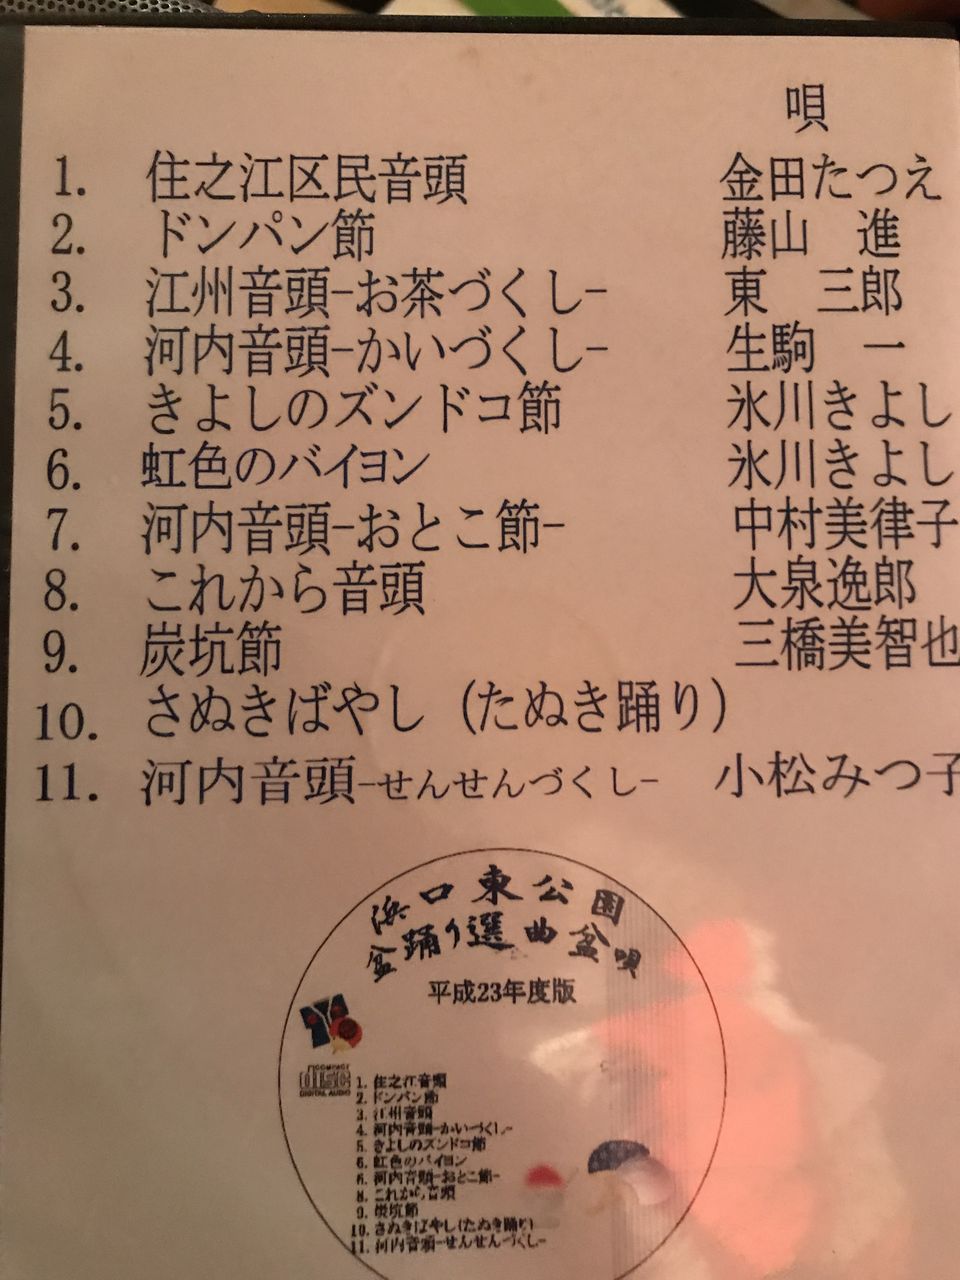 唄
1. 住之江区民音頭 金田たつえ
2. ドンパン節 藤山 進
3. 江州音頭-お茶づくし- 東 三郎
4. 河内音頭-かいづくし- 生駒 一
5. きよしのズンドコ節 氷川きよし
6. 虹色のバイヨン 氷川きよし
7. 河内音頭-おとこ節- 中村美律子
8. これから音頭 大泉逸郎
9. 炭坑節 三橋美智也
10. さぬきばやし（たぬき踊り）
11. 河内音頭-せんせんづくし- 小松みつ子
浜口東公園
盆踊り選曲盆唄
平成23年度版
COMPACT
disc
DIGITAL AUDIO
1. 住之江音頭
2. ドンパン節
3. 江州音頭
4. 河内音頭-かいづくし-
5. きよしのズンドコ節
6. 虹色のバイヨン
6. 河内音頭-おとこ節-
8. これから音頭
9. 炭坑節
10. さぬきばやし(たぬき踊り)
11. 河内音頭-せんせんづくし-